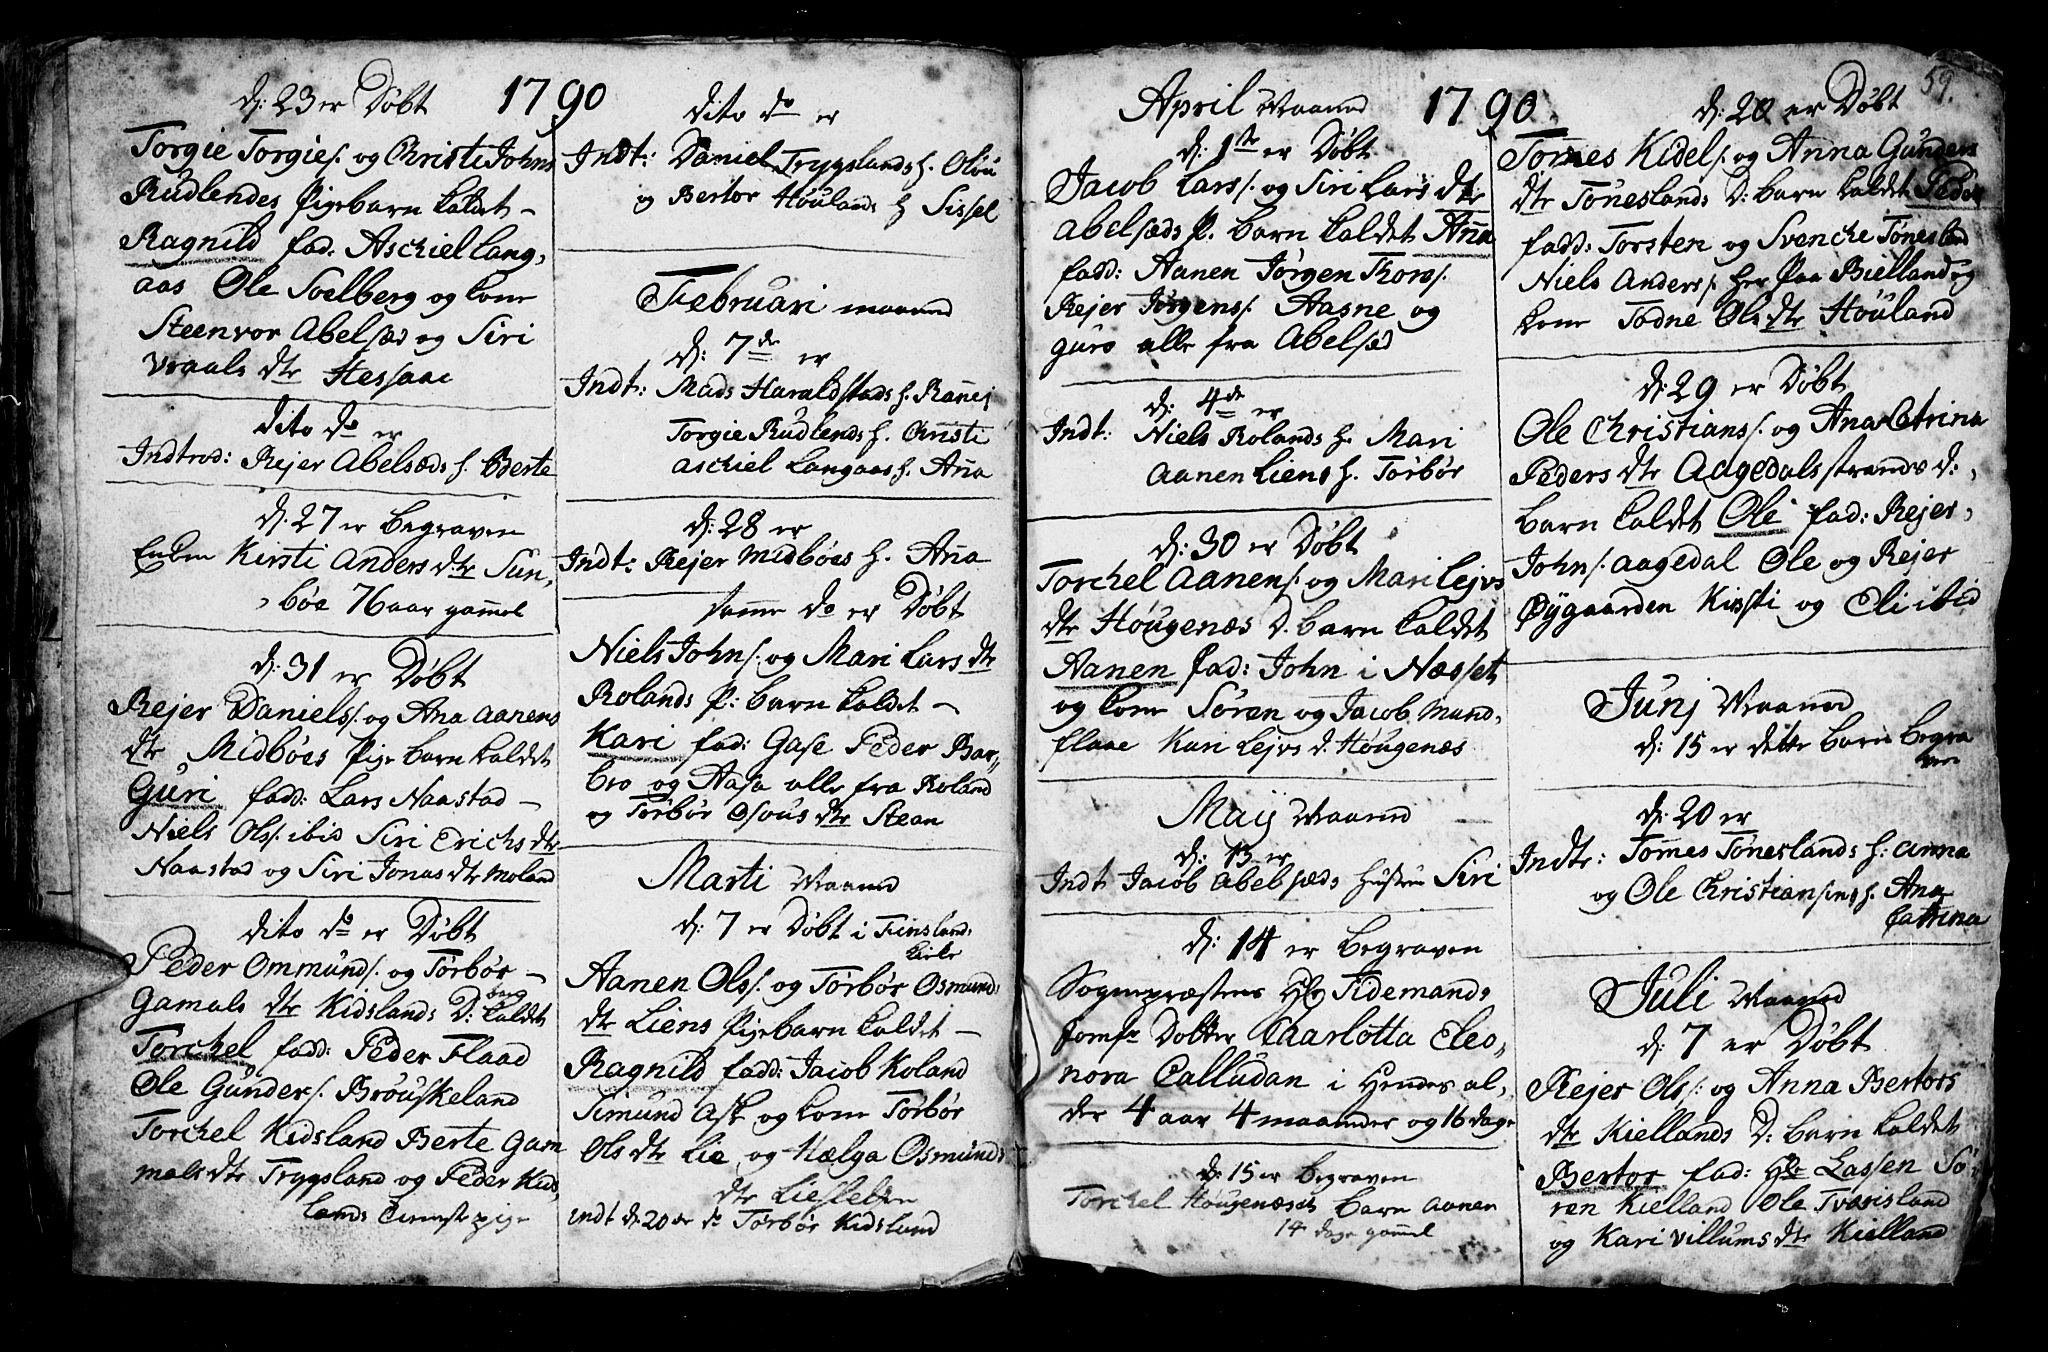 1790
d: 23 er Døbt
Torgie Torgies: og Christi Johns
Rudlendes Pigebarn kaldet –
Ragnild fad: Aschiel Lang,
aas Ole Soelberg og kone
Steenvor Abelsæd og Siri
Vraals dtr Hessaae
dito do er
Indtrod: Rejer Abelsæds h. Berte
d. 27 er begraven
Enken Kirsti Anders dtr Sun,
,böe 76 aar gammel
d. 31 er Døbt
Rejer Daniels: og Ana Aanens
dtr Midböes Pige barn kaldet
Guri fadd: Lars Naastad –
Niels Ols: ibid Siri Erichs dtr
Naastad og Siri Jonas dtr Moland
dito do er Døbt
Peder Ommunds: og Torbör –
Gamals dtr Kidslands D: barn kaldet
Torchel fadd: Peder Flaad
Ole Gunders: Bröuskeland
Torchel Kidsland Berte Gam
mals dtr Trygsland og Peder Kids,
lands tienstepige
dito do er
Indt: Daniel Trygslands h. Oloü
og Bertor Höulands h Sissel
Februari maaned
d: 7de er
Indt: Mads Haraldstads h. Ranej
Torgie Rudlends h. Christi
Aschiel Langaas h. Ana
d: 28 er
Indt: Rejer Midböes h. Ana
samme do er Døbt
Niels Johns: og Mari Lars dtr
Rolands P: barn kaldet –
Kari fad: Gase Peder Bar,,
bro og Aasa alle fra Roland
og Torbör Osous dtr Stean
Marti Maaned
d: 7 er Døbt i Finslands
Kirke
Aanen Ols: og Torbör Osmunds
dtr Liens Pigebarn kaldet –
Ragnild fadd: Jacob Roland
Simund Ask og kone Torbör
Ols dtr Lie og Hælga Osmunds
dtr Liesleden
indt d: 20 er do Torbör Kidsland
59.
1790
April Maaned
d: 1ste er Døbt
Jacob Lars: og Siri Lars dtr
Abelsæds P. barn kaldet Ana
fadd: Aanen Jörgen Thors:
Rejer Jörgens: Aasne og
guro alle fra Abelsæd
d: 4de er
Indt: Niels Rolands h. Mari
Aanen Liens h. Torbör
d: 30 er Døbt
Torchel Aanens: og Mari Lejvs
dtr Höugenæs D. barn kaldet
Aanen fad: John i Næsset
og kone Sören og Jacob Mand,
flaae Kari Lejvs d. Höugenæs
Maij Maaned
d: 13 er
Indt Jacob Abelsæds Hustrue Siri
d: 14 er begraven
Sognepræstens Hr Tidemands
Jomfr Dotter Charlotta Eleo,
nora Calludan i Hendes al,
der 4 aar 4 maaneder og 16 dage
d: 15 er begraven
Torchel Höugenæsets barn Aanen
14 dage gammel
d: 20 er Døbt
Tomes Kidels: og Anna Gunders
dtr Töneslands D: barn kaldet Peder
fadd: Torsten og Svenche Tönesland
Niels Anders: Her Paa Bielland og
kone Todne Ols dtr Höuland
d: 29 er Døbt
Ole Christians: og Ana Catrina
Peders dtr Aagedals strands d:
barn kaldet Ole fad: Rejer,
Johns: Aagedal Ole og Rejer
Øygaarden Kirsti og Eli ibid
Junj Maaned
d: 15 er dette barn begra
ven
d: 20 er
Indtr: Tomes Töneslands h: Anna
og Ole Christiansens h. Ana
Cattrina
Juli Maaned
d: 7 er Døbt
Rejer Ols: og Anna Bertors
dtr Kiellands D: barn kaldet
Bertor fad: Hr Lassen Sö
ren Kielland Ole Tvarisland
og Kari Villums dtr Kielland